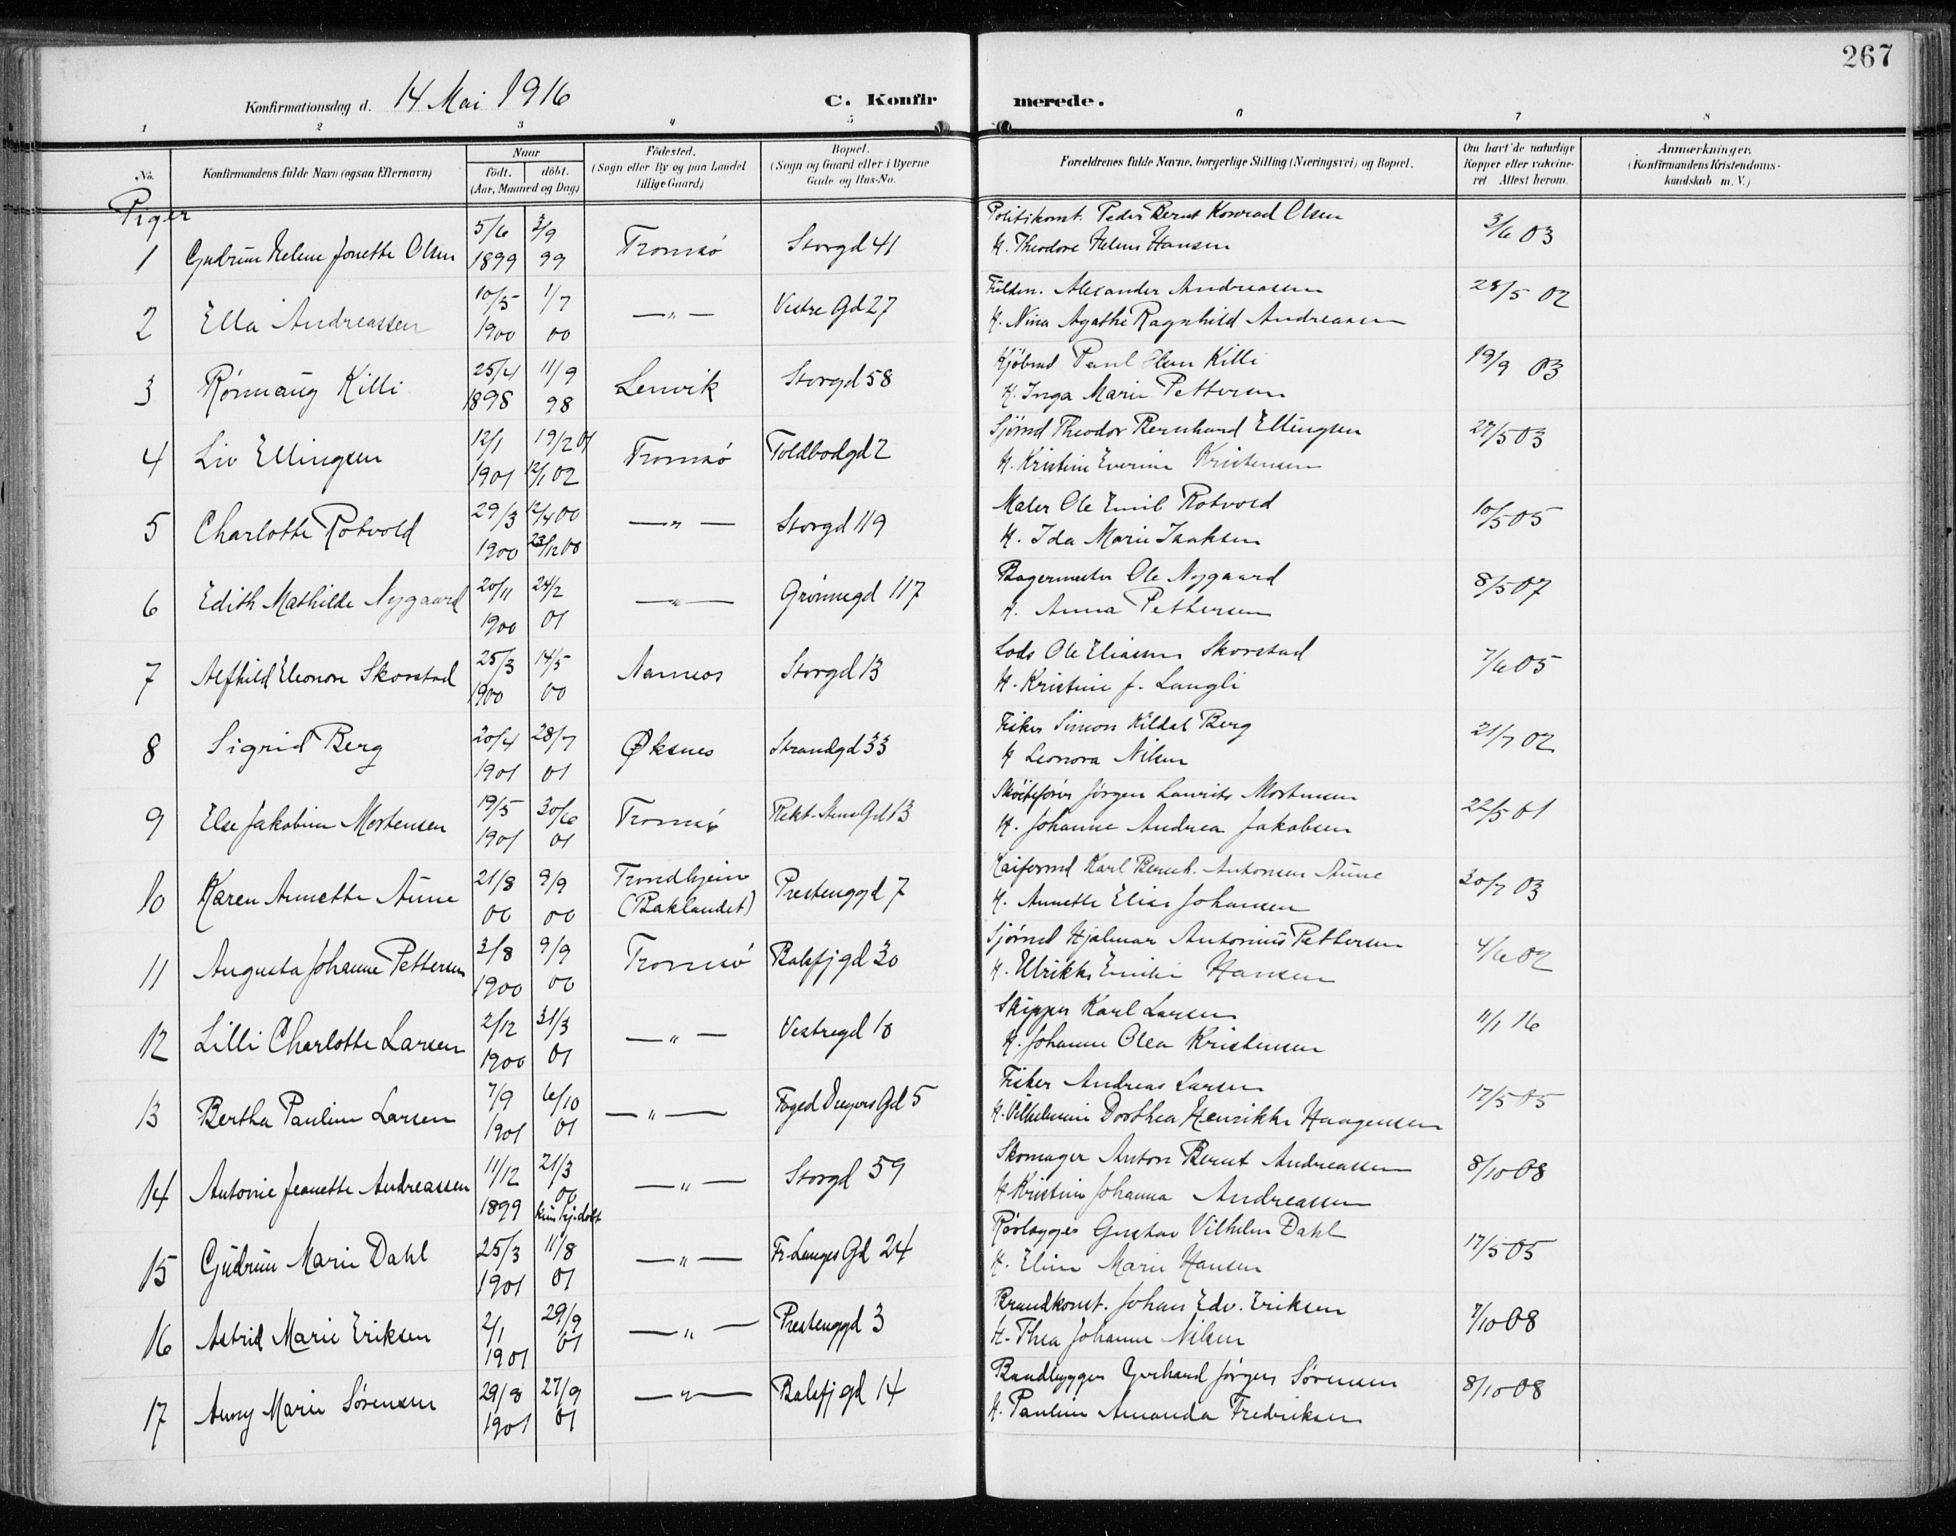 267
Konfirmationsdag d. 14 Mai 1916 C. Konfirmerede.
1 2 3 4 5 6 7 8
No. Konfirmandens fulde Navn (ogsaa Efternavn) Naar født. døbt. (Aar, Maaned og Dag) Fødested. (Sogn eller By og paa Landet tillige Gaard) Bopæl. (Sogn og Gaard eller i Byerne Gade og Hus-No. Forældrenes fulde Navne, borgerlige Stilling (Næringsvei) og Bopæl. Om havt de naturlige Kopper eller vaksineret Attest herom. Anmærkninger. (Konfirmandens Kristendomskundskab m. V.)
Piger
1 Gudrun Helene Jonette Olsen 5/6 1899 3/9 99 Tromsø Storgd 41 Politikonst. Peder Bernt Konrad Olsen 3/6 03
H. Theodore Helene Hansen
2 Ella Andreassen 10/5 1900 1/7 00 —〃— Vestre Gd 27 Alexander Andreassen 28/5 02
H. Nina Agathe Ragnhild Andreasen
3 Rønnaug Killi 25/4 1898 11/9 98 Lenvik Storgd 58 Kjøbmd Paul Killi 19/9 03
H. Inga Marie Pettersen
4 Liv Ellingsen 12/1 1901 19/2 01 12/1 02 Tromsø Toldbodgd 2 Sjømd Theodor Bernhard Ellingsen 27/5 03
H. Kristine Everine Kristensen
5 Charlotte Rotvold 29/3 1900 12/4 00 23/12 00 —〃— Storgd 119 Maler Ole Emil Rotvold 10/5 05
H. Ida Marie Isaksen
6 Edith Mathilde Nygaard 20/11 1900 24/2 01 —〃— Grønnegd 117 Bagermester Ole Nygaard 8/5 07
H. Anna Pettersen
7 Alfhild Eleonore Skorstad 25/3 1900 14/5 00 Namsos Storgd 13 Lods Ole Eliassen Skorstad 7/6 05
H. Kristine J. Langli
8 Sigrid Berg 20/4 1901 28/7 01 Øksnes Strandgd 33 Fisker Simon Kildal Berg 21/7 02
H Leonora Nilsen
9 Else Jakobine Mortensen 19/5 1901 30/6 01 Tromsø Rekt. Steens Gd 13 Skøitefører Jørgen Laurits Mortensen 22/5 01
H. Johanne Andrea Jakobsen
10 Karen Annette Aune 21/8 00 9/9 00 Trondhjem (Baklandet) Prestenggd 7 Kaiformd Karl Bernh. Antonsen Aune 30/7 03
H. Annette Elise Johansen
11 Augusta Johanne Pettersen 3/8 1900 9/9 00 Tromsø Balsfj gd 30 Sjømd Hjalmar Antonius Pettersen 4/6 02
H. Ulrikke Emilie Hansen
12 Lilli Charlotte Larsen 2/12 1900 31/3 01 —〃— Vestregd 10 Skipper Karl Larsen 11/1 16
H. Johanne Olea Kristensen
13 Bertha Pauline Larsen 7/9 1901 6/10 01 —〃— Foged Dreyers Gd 5 Fisker Andreas Larsen 17/5 05
H. Vilhelmine Dorothea Henrikke Haagensen
14 Antonie Jeanette Andreassen 11/12 1899 21/3 00 Storgd 59 —〃— Skomager Anton Bernt Andreassen 8/10 08
H Kristine Johanna Andreassen
15 Gudrun Marie Dahl 25/3 1901 11/8 01 —〃— Fr. Langes Gd 24 Rørlægger Gustav Vilhelm Dahl 17/5 05
H. Eline Marie Hansen
16 Astrid Marie Eriksen 2/1 1901 29/9 01 —〃— Prestenggd 3 Brandkonst. Johan Edv. Eriksen 7/10 08
H. Thea Johanne Nilsen
17 Anny Marie Sørensen 29/8 1901 27/9 01 —〃— Balsfj gd 14 Baadbygger Gerhard Jørgen Sørensen 8/10 08
H. Pauline Amanda Fredriksen